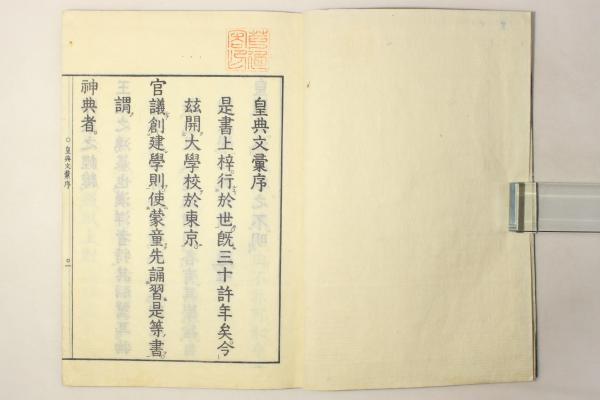 皇典文彙序
是書上梓行於世既三十許年矣今
玆開大學校於東京
官議創建學則使蒙童先誦習是等書
謂
神典者
皇典文彙序